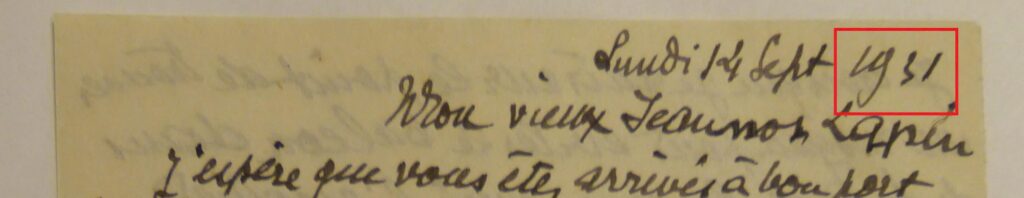 Lundi 14 Sept 1931
Mon vieux Jeannot Lapin
j'espère que vous êtes arrivés à bon port